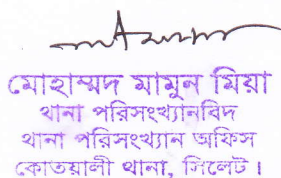 মোহাম্মদ মামুন মিয়া
থানা পরিসংখ্যানবিদ
থানা পরিসংখ্যান অফিস
কোতয়ালী থানা, সিলেট।